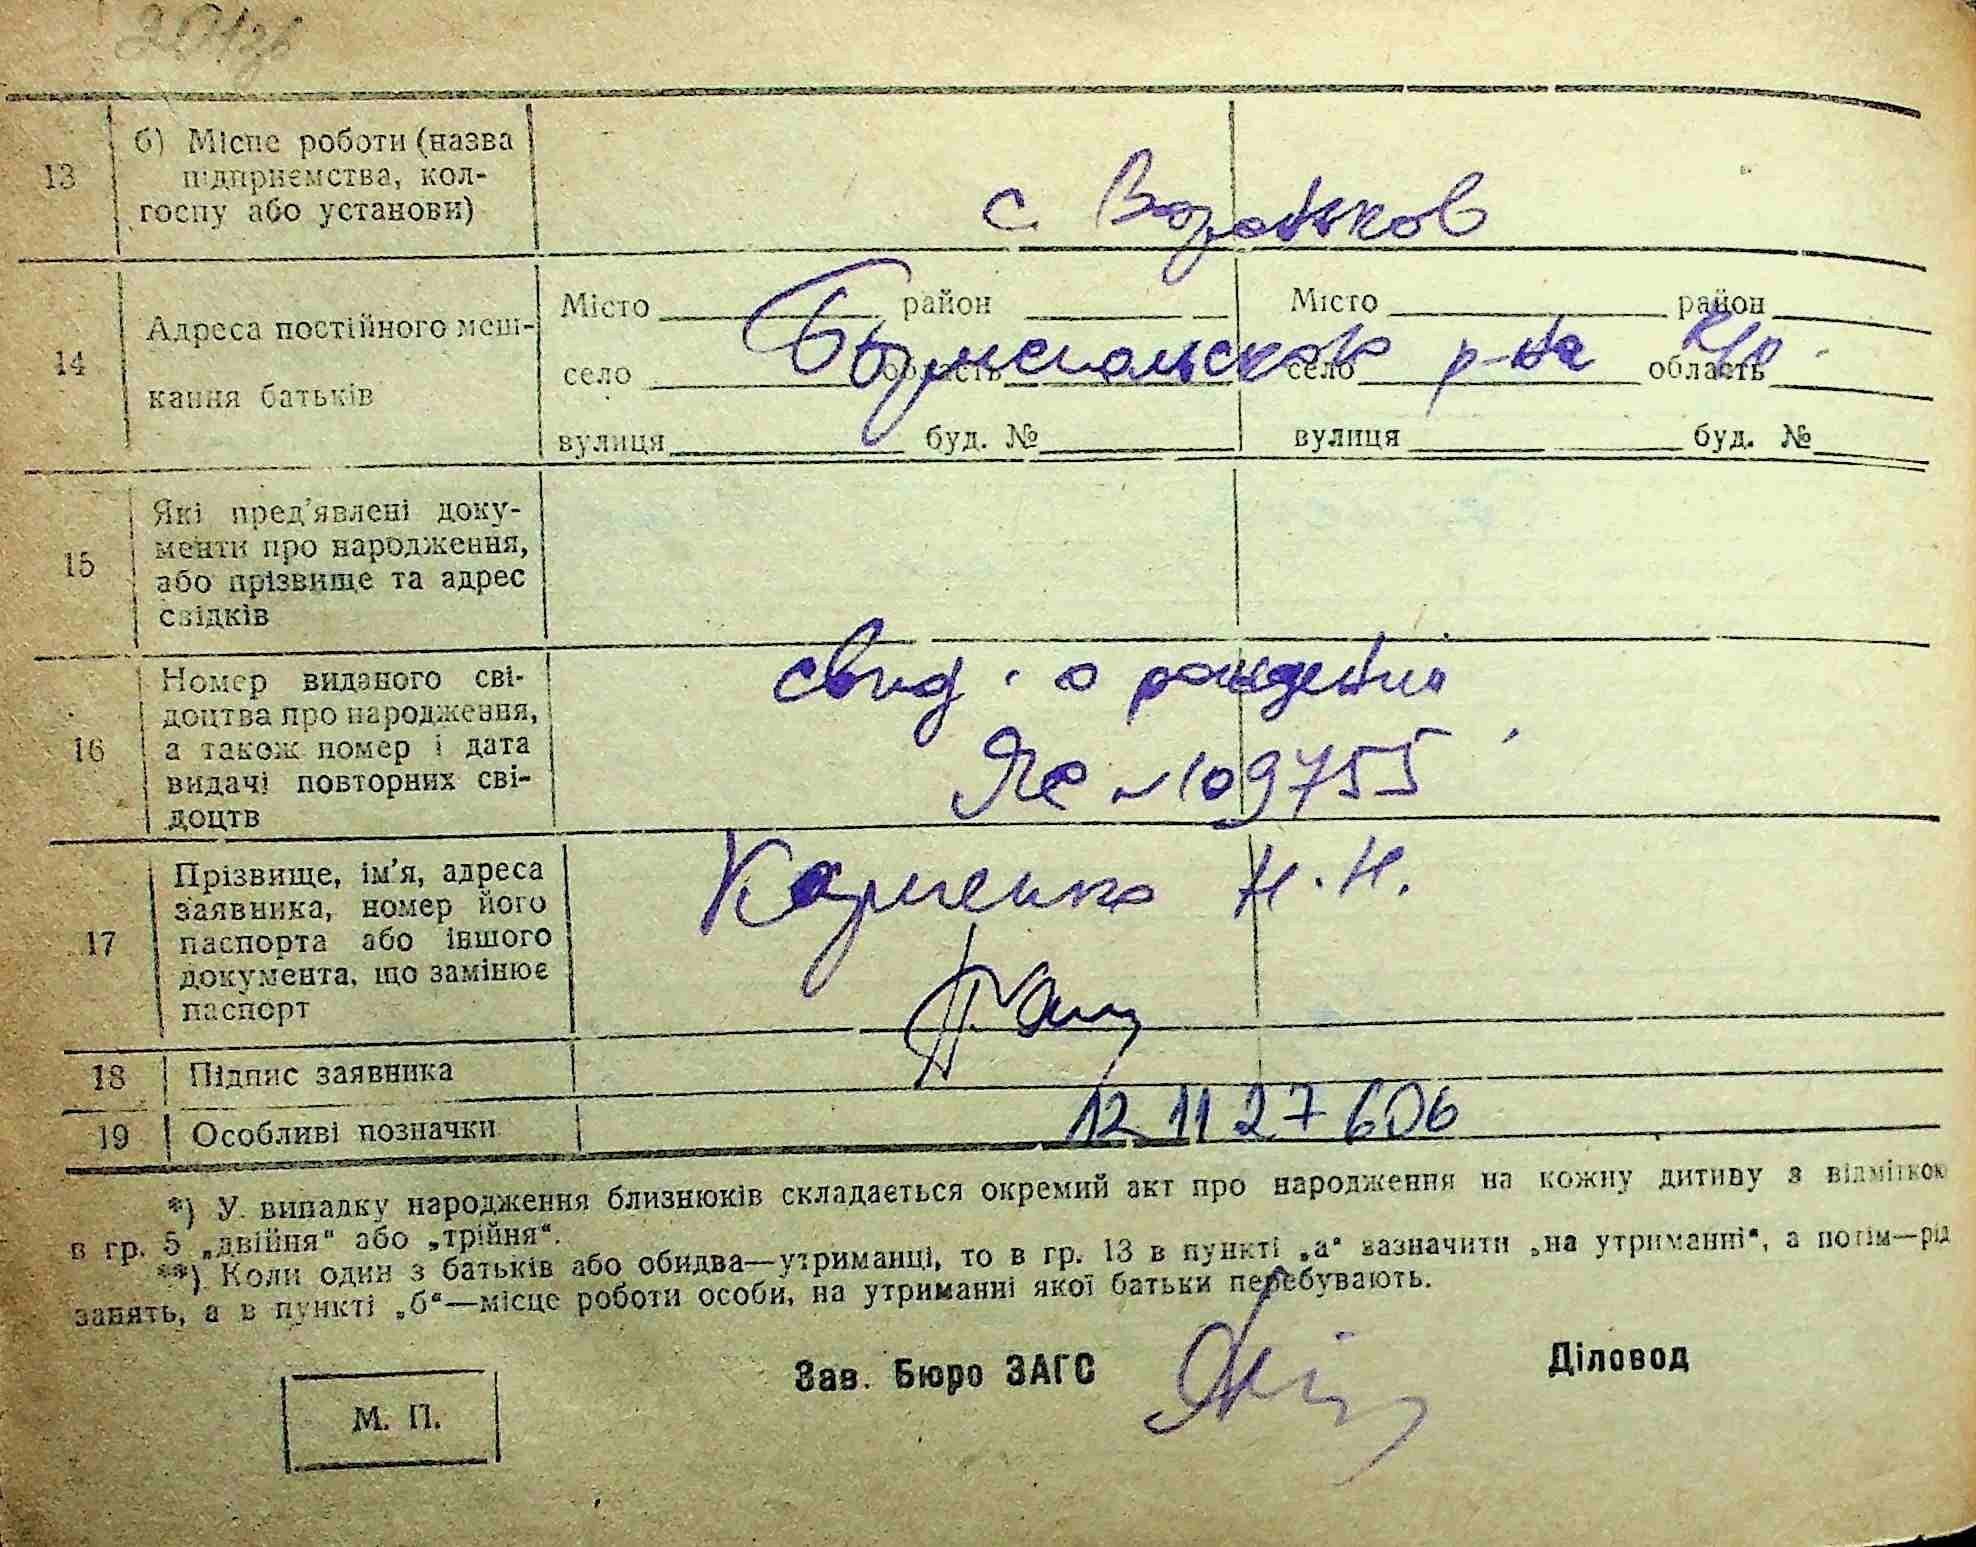 13
б) Місце роботи (назва
підприємства, кол-
госпу або установи)
с Воронков
14
Адреса постійного меш-
кання батьків
Місто район
село область
вулиця буд. №
Місто район
село область
вулиця буд. №
Бориспольского р-на
15
Які пред'явлені доку-
менти про народження,
або прізвище та адрес
свідків
16
Номер виданого сві-
доцтва про народження,
а також номер і дата
видачі повторних сві-
доцтв
свид. о рождении
№109755
17
Прізвище, ім'я, адреса
заявника, номер його
паспорта або іншого
документа, що замінює
паспорт
Карпенко Н.Н.
18 Підпис заявника
19 Особливі позначки
12 11 27 606
*) У випадку народження близнюків складається окремий акт про народження на кожну дитину з відміткою
в гр. 5 „двійня“ або „трійня“.
**) Коли один з батьків або обидва—утриманці, то в гр. 13 в пункті „а“ зазначити „на утриманні“, а потім—рід
занять, а в пункті „б“—місце роботи особи, на утриманні якої батьки перебувають.
Зав. Бюро ЗАГС
Діловод
М. П.